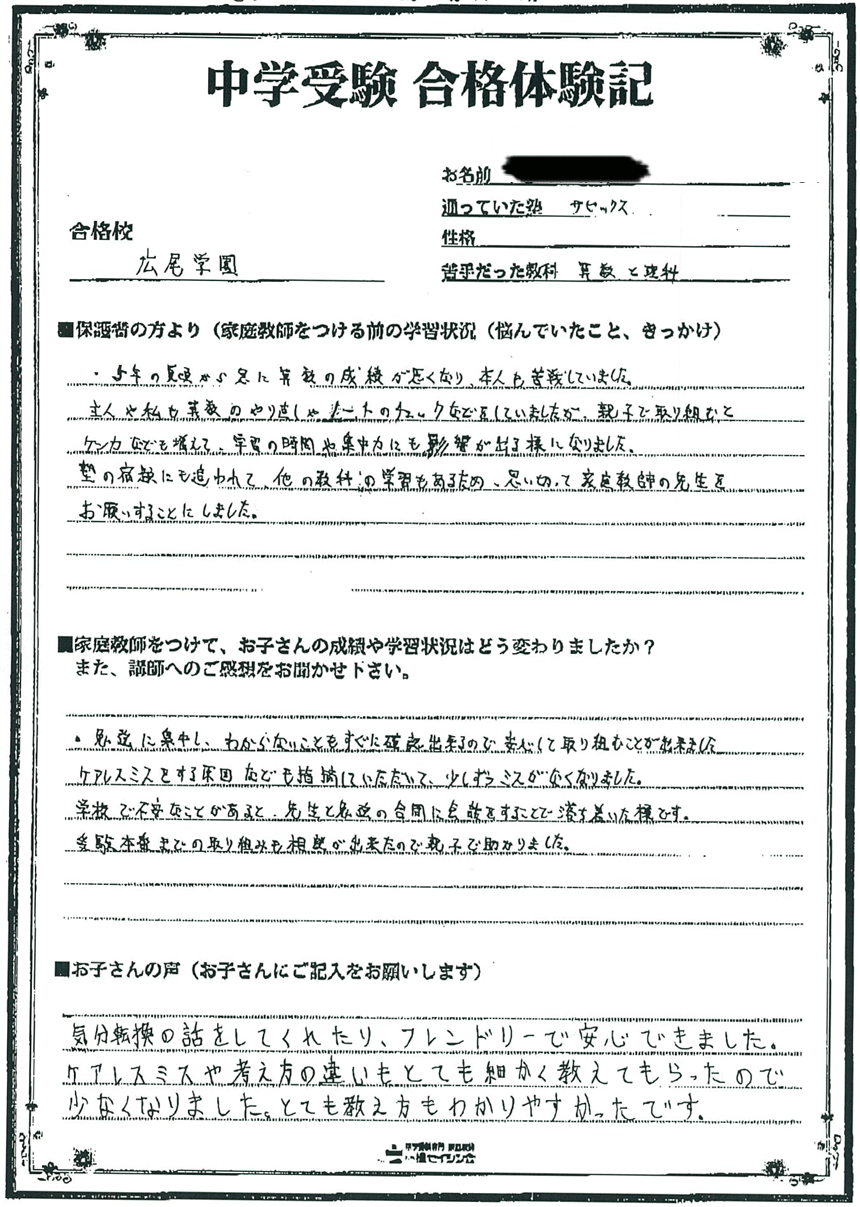 中学受験 合格体験記
お名前
通っていた塾 サピックス
合格校
性格
広尾学園
苦手だった教科 算数と理科
■保護者の方より（家庭教師をつける前の学習状況（悩んでいたこと、きっかけ）
・5年の夏頃から急に算数の成績が悪くなり、本人も苦戦していました。
主人や私も算数のやり直しやノートのチェックなどをしていましたが、親子で取り組むと
ケンカなども増えて、学習の時間や集中力にも影響が出る様になりました。
塾の宿題にも追われて、他の教科の学習もあるため、思い切って家庭教師の先生を
お願いすることにしました。
■家庭教師をつけて、お子さんの成績や学習状況はどう変わりましたか？
また、講師へのご感想をお聞かせ下さい。
・勉強に集中し、わからないこともすぐに確認出来るので安心して取り組むことが出来ました
ケアレスミスをする原因なども指摘していただいて、少しずつミスがなくなりました。
学校で不安なことがあると、先生と勉強の合間に会話をすることで落ち着いた様です。
受験本番までの取り組みも相談が出来たので親子で助かりました。
■お子さんの声（お子さんにご記入をお願いします）
気分転換の話をしてくれたり、フレンドリーで安心できました。
ケアレスミスや考え方の違いもとても細かく教えてもらったので
少なくなりました。とても教え方もわかりやすかったです。